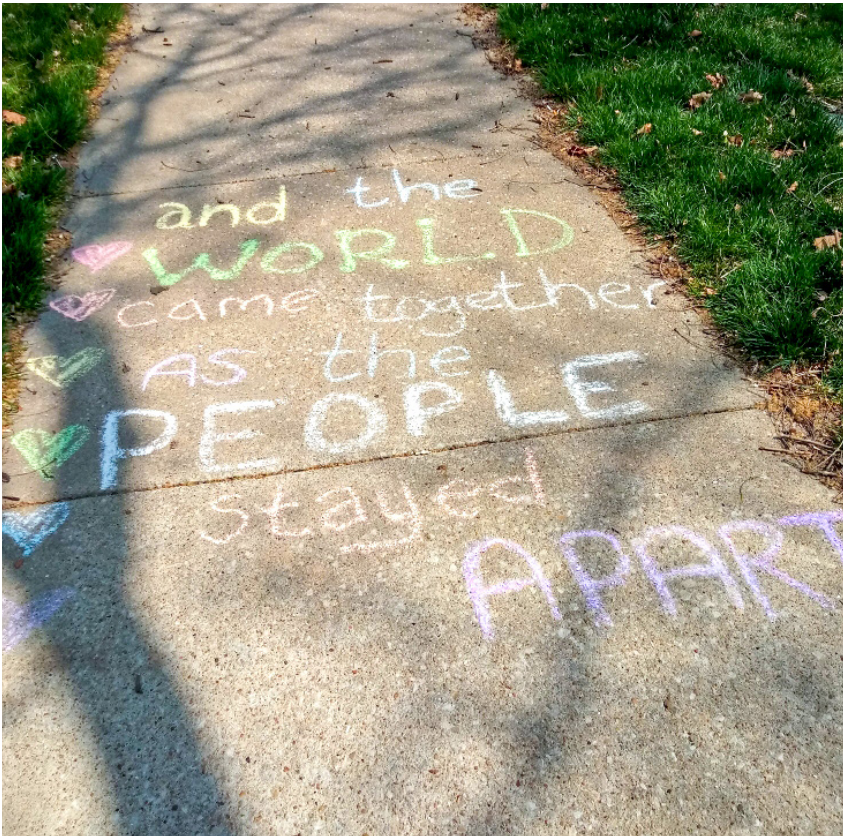 and the
WORLD
came together
AS the
PEOPLE
stayed
APART